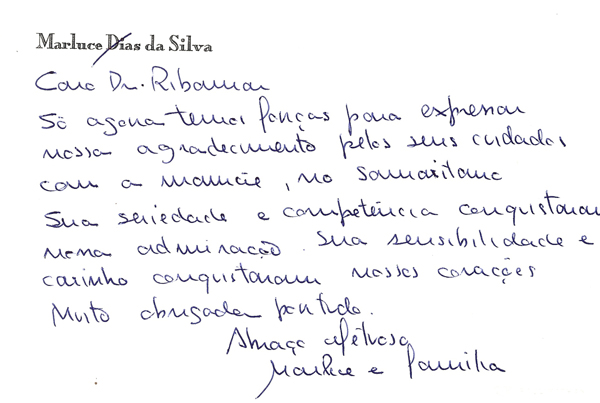 Marluce Dias da Silva
Caro Dr. Ribamar
Só agora tenho forças para expressar
nosso agradecimento pelos seus cuidados
com a mamãe, no Samaritano
Sua seriedade e competência conquistaram
nossa admiração. Sua sensibilidade e
carinho conquistaram nossos corações
Muito obrigada por tudo.
Abraço afetuoso
Marluce e família